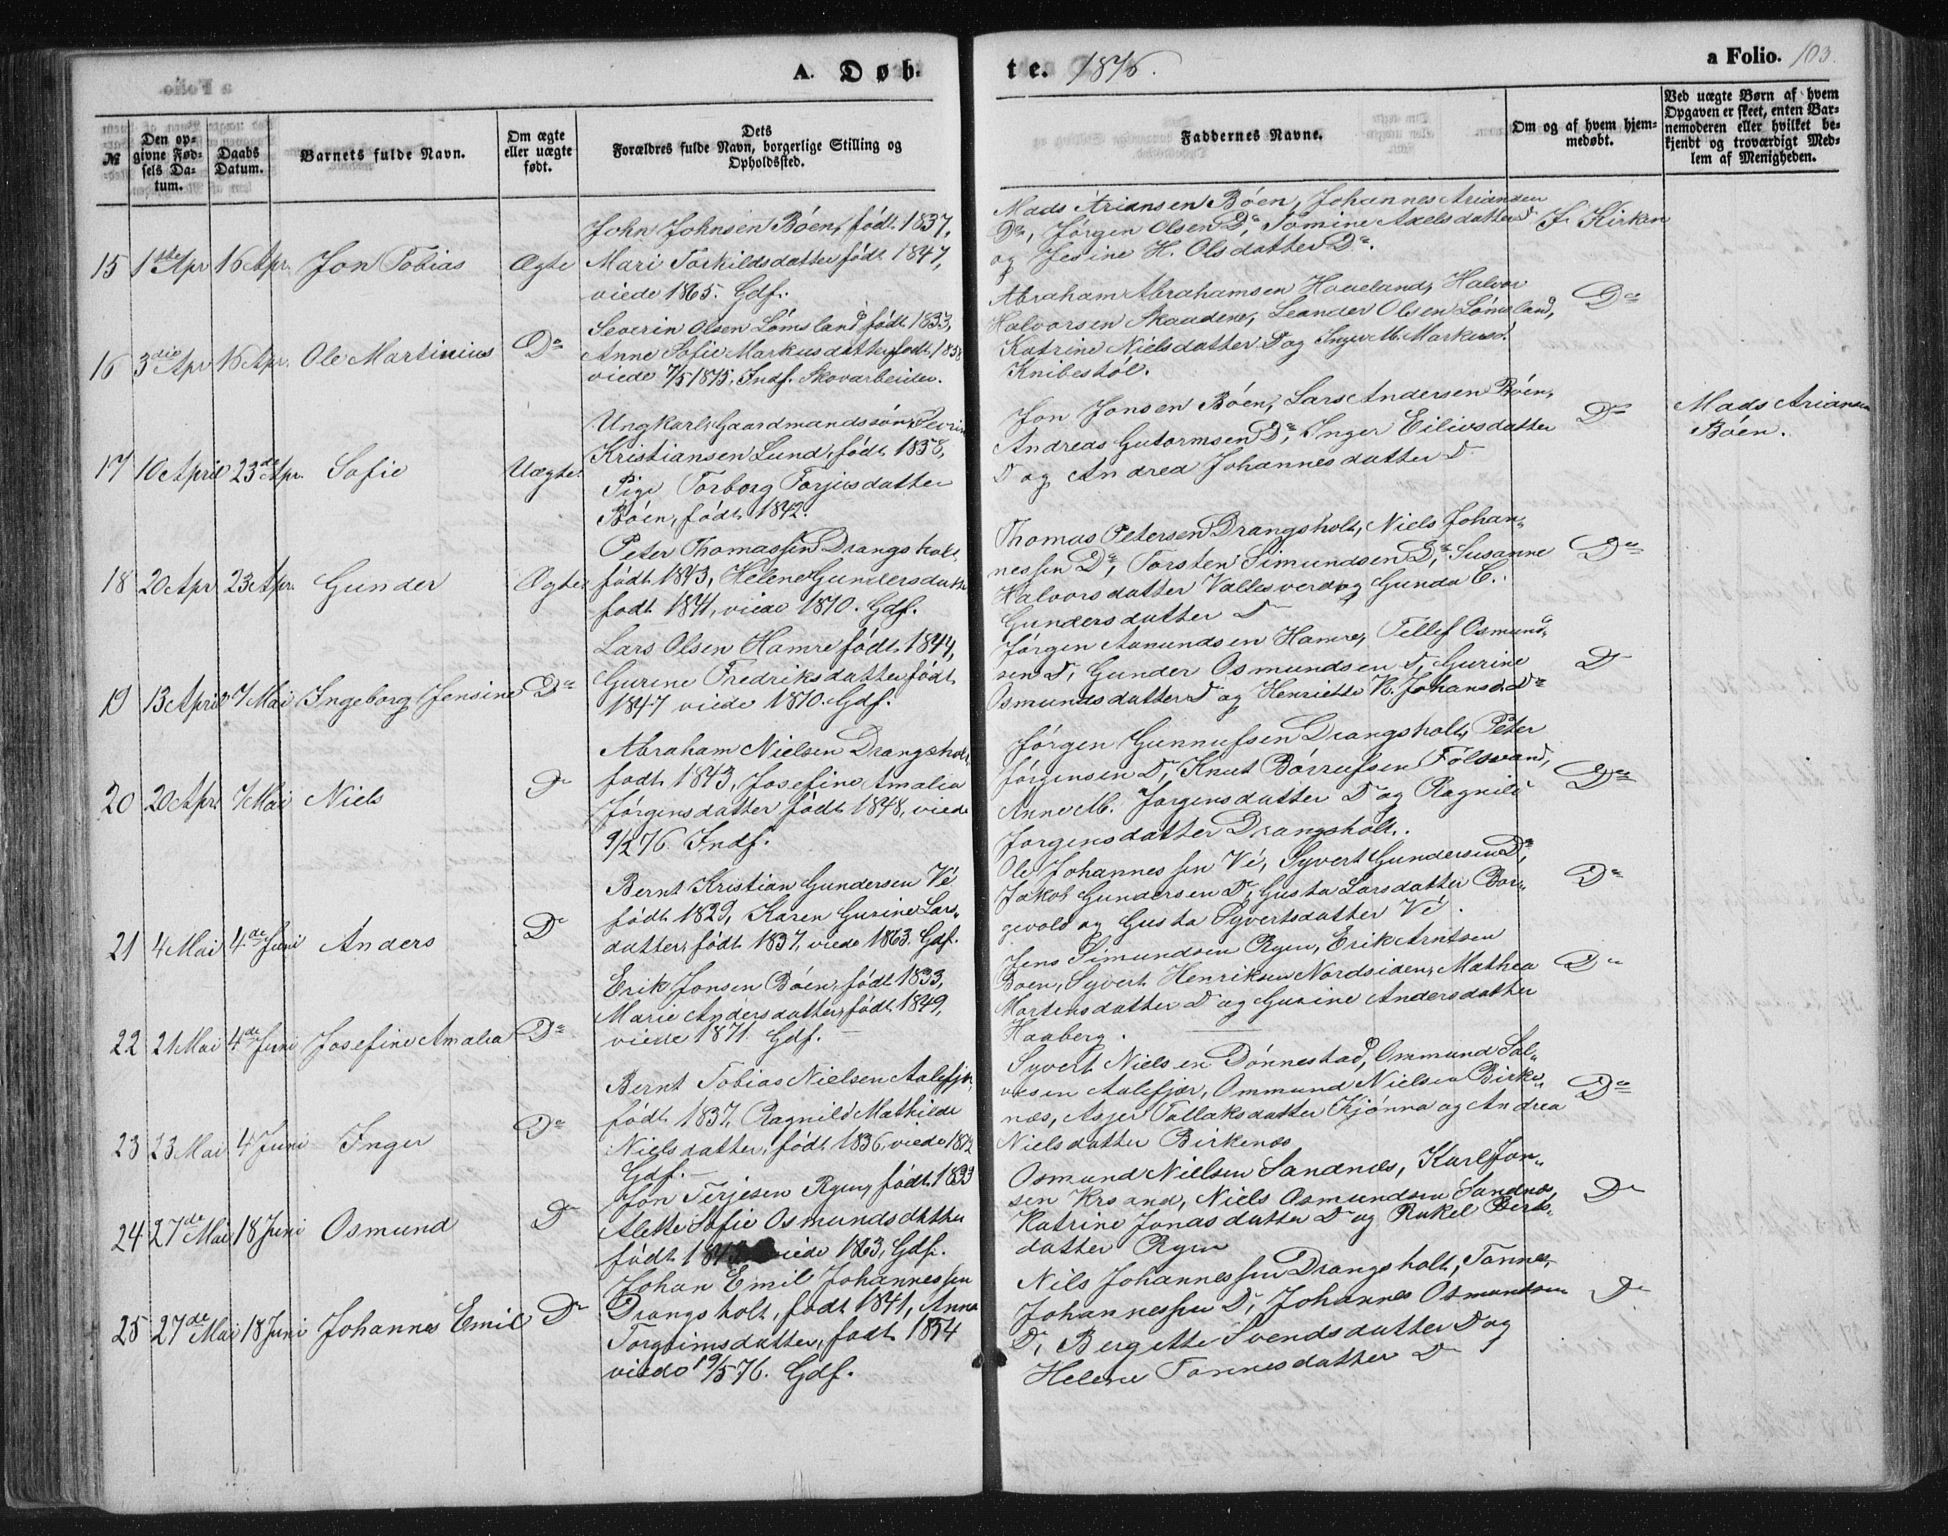 A. Døb-
te. 1876.
a Folio. 103.
№
Den opgivne Fødsels Datum.
Daabs Datum.
Barnets fulde Navn.
Om ægte eller uægte født.
Dets Forældres fulde Navn, borgerlige Stilling og Opholdssted.
Faddernes Navne.
Om og af hvem hjemmedøbt.
Ved uægte Børn af hvem Opgaven er skeet, enten Barnemoderen eller hvilket bekjendt og troværdigt Medlem af Menigheden.
15 1ste Apr 16 Apr. Jon Tobias Ægte
John Johnsen Bóen, født 1837,
Mari Torkildsdatter født 1847,
viede 1865. Gdf.
Mads Ariansen Bóen, Johannes Ariansen
Do, Jørgen Olsen Do, Tomine Axelsdatter Do
og Jesine H. Olsdatter Do.
I Kirken
16 3die Apr 16 Apr. Ole Martinius Do
Severin Olsen Lómsland født 1833,
Anne Sofie Markusdatter, født 1838
viede 7/5 1875, Indf. Skovarbeider.
Abraham Abrahamsen Haueland, Halvor
Halvorsen Skaadene, Leander Olsen Lómsland,
Katrine Nielsdatter D og Inger M. Markusd.
Knibestól.
Do
17 16 April 23de Apr. Sofie Uægte
Ungkarl, Gaardmandssøn, Sevrin
Kristiansen Lund, født 1858,
Pige Torborg Torjusdatter
Bóen, født 1842.
Jon Jonsen Bóen, Lars Andersen Bóen,
Andreas Gutormsen Do, Inger Eilivsdatter
D og Andrea Johannesdatter D
Do
Mads Ariansen
Bóen.
18 20 Apr 23 Apr. Gunder Ægte
Peter Thomassen Drangsholt
født 1843, Helene Gundersdatter
født 1841, viede 1870. Gdf.
Thomas Petersen Drangsholt, Niels Johan-
nessen Do, Torsten Simundsen Do, Susanne
Halvorsdatter Vallesverd og Gunda C.
Gundersdatter D
Do
19 13 April 7 Mai Ingeborg Jensine Do
Lars Olsen Hamre født 1844,
Gurine Fredriksdatter født
1847 viede 1870. Gdf.
Jørgen Aanundsen Hamre, Tellef Osmund-
sen D, Gunder Osmundsen D, Gurine
Osmundsdatter D og Henriette K. Johansd. Do
D
20 20 Apr 7 Mai Niels D
Abraham Nielsen Drangsholt
født 1843, Josefine Amalia
Jørgensdatter født 1848, viede
9/2 76. Indf.
Jørgen Gunnufsen Drangsholt, Peter
Jørgensen D, Knut Bórrufsen Fólsvand,
Anne M. Jørgensdatter D og Ragnild
Jørgensdatter Drangsholt.
Do
21 4 Mai 4de Juni Anders D
Bernt Kristian Gundersen Vé
født 1829, Karen Gurine Lars-
datter, født 1837, viede 1863. Gdf.
Ole Johannessen Vé, Syvert Gundersen Do,
Jakob Gundersen D, Gusta Larsdatter Bor-
gevold og Gusta Syvertsdatter Vé.
Do
22 21 Mai 4de Juni Josefine Amalia Do
Erik Jonsen Bóen, født 1833,
Marie Andersdatter, født 1849,
viede 1871. Gdf.
Jens Simundsen Ryen, Erik Arntsen
Boen, Syvert Henriksen Nordsiden, Mathea
Mortensdatter D og Gurine Andersdatter
Haaberg.
Do
23 23 Mai 4 Juni Inger Do
Bernt Tobias Nielsen Aalefjer,
født 1837, Ragnild Mathilde
Nielsdatter, født 1836, viede 1872
Gdf.
Syvert Nielsen Dónnestad, Ommund Sal-
vesen Aalefjær, Ommund Nielsen Birke-
næs, Asjer Tallaksdatter Kjónna og Andrea
Nielsdatter Birkenæs
Do
24 27de Mai 18 Juni Osmund D
Jon Terjesen Ryen, født 1833
Alette Sofie Osmundsdatter
født 184 viede 1863, Gdf.
Osmund Nielsen Sandnes, Karl Jon-
sen Krsand, Niels Osmundsen Sandnæs,
Katrine Jonasdatter D og Rakel Berts-
datter Ryen
D
25 27de Mai 18 Juni Johannes Emil D
Johan Emil Johannessen
Drangsholt, født 1841, Anna
Torgrimsdatter, født 1854
viede 19/5 76. Gdf.
Nils Johannessen Drangsholt, Tønnes
Johannessen D, Johannes Osmundsen
D, Bergette Svendsdatter D og
Helene Tønnesdatter D
D